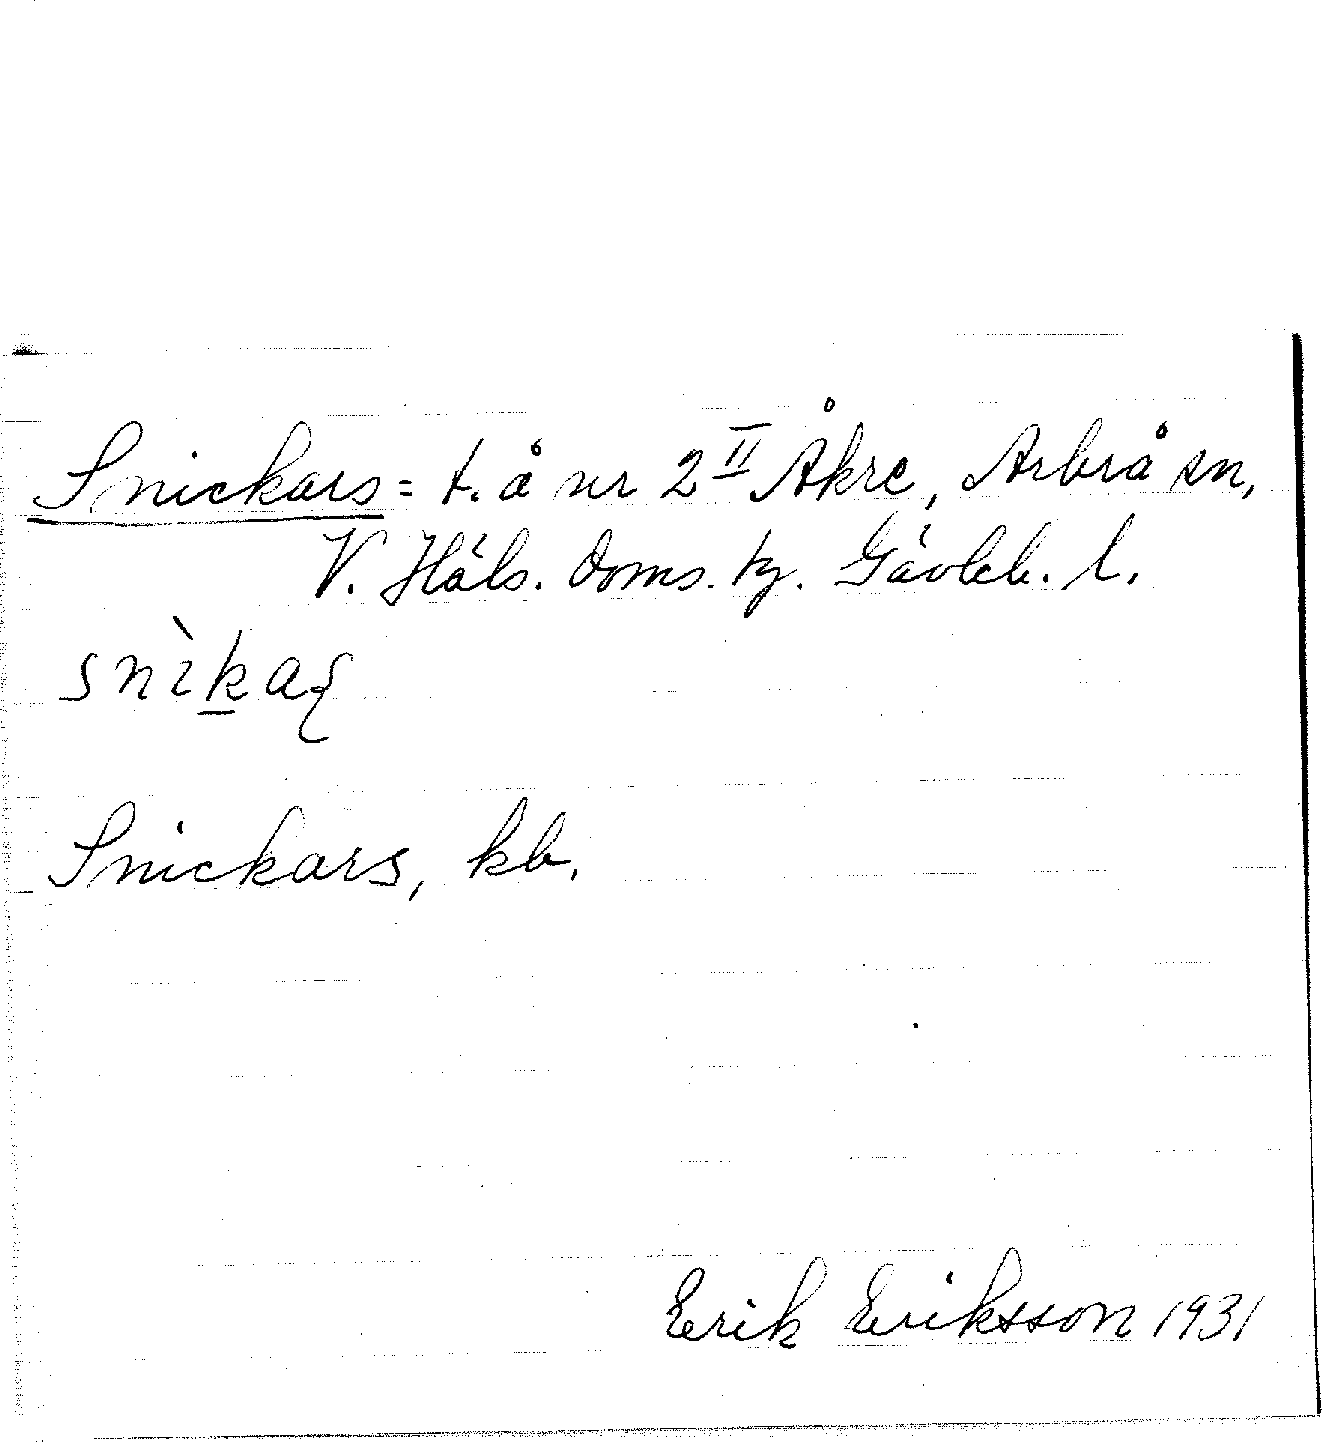 Snickars = t. å nr 2 II Åkre, Arbrå sn,
V. Häls. doms. tg. Gävleb. l.
snìk̲aʂ
Snickars, kb.
Erik Eriksson 1931